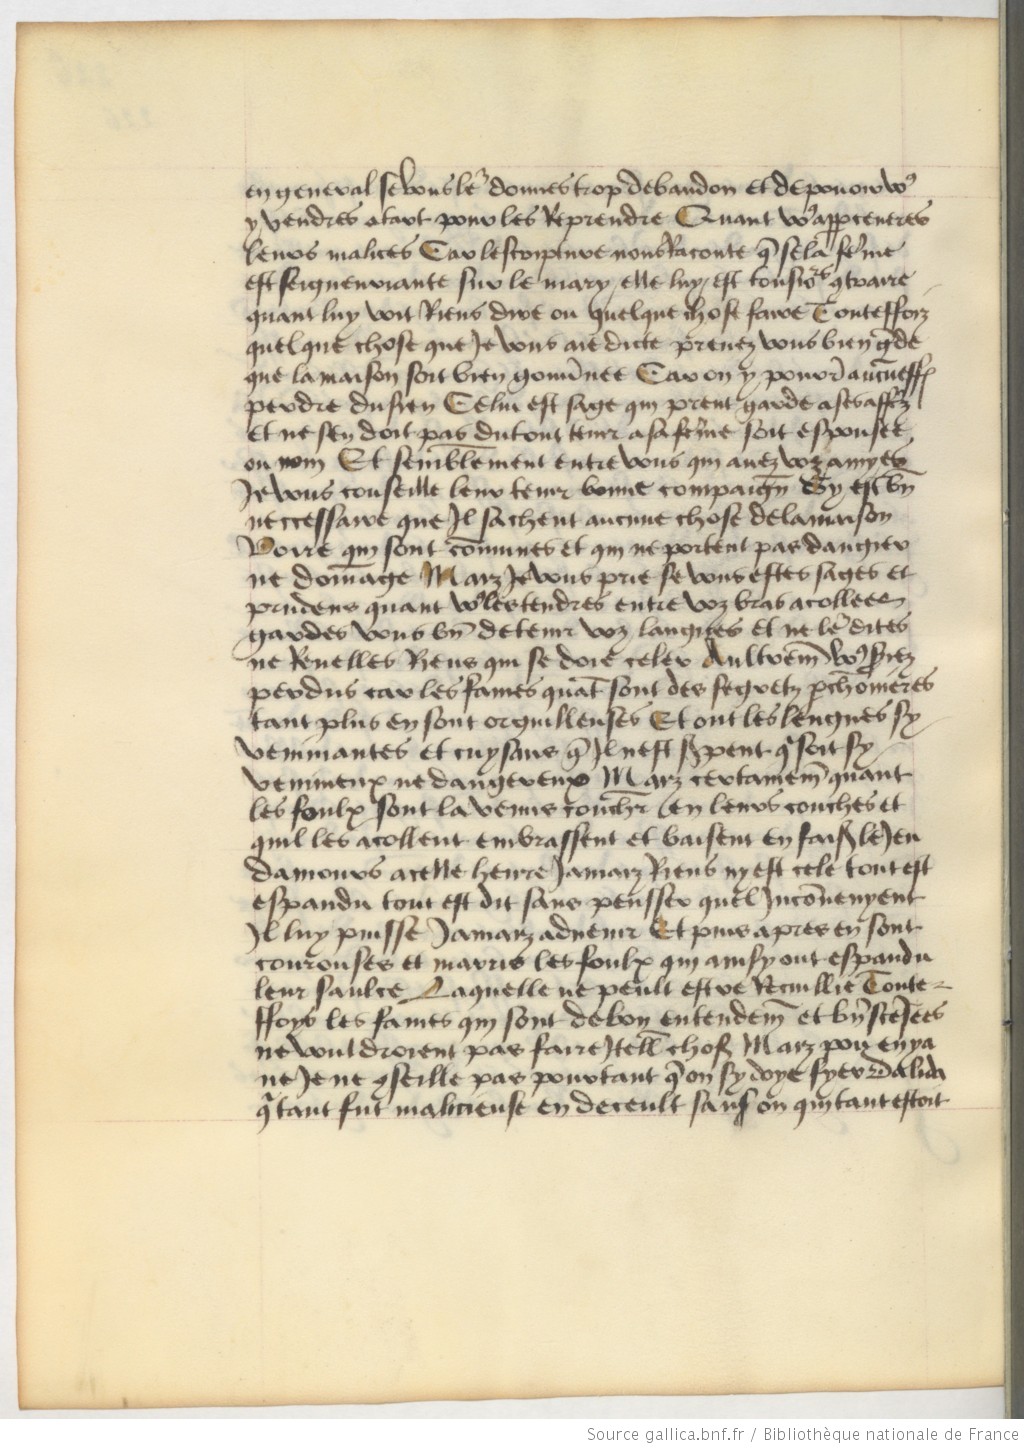 en general se vous le᷑ donnes trop debandon Et de pouoir vo᷑
y vendres a tart pour les Reprendre Quant vo᷑ apperceueres
leurs malices Car lescripture nous Raconte q̃ se la fe᷑me
est seigneuriante sur le mary elle luy est tousio᷑s ꝯtraire
quant luy voit Riens dire ou quelque chose faire Touteffoiz
quelque chose que Je vous aie dicte prenez vous bien g̃de
que la maison soit bien gouu᷑nee Car on y pourr̃ aucũeff
perdre du sien Celui est sage qui prent garde a ses affe᷑z
Et ne sen doit pas du tout tenir a sa fe᷑me soit espousee
ou nom Et semblement entre vous qui auez voz amyes
Je vous conseille leur tenir bonne compaign̄ Et y est bn̄
neccessaire que Jl sachent aucune chose de la maison
Voire qui sont co᷑munes et qui ne portent pas dangier
ne dom̄age Maiz Je vous prie se vous estes sages et
prudens quant vo᷑ les tendres entre voz bras acollees
gardes vous bn̄ de tenir voz langues et ne le᷑ dites
ne Reuelles Riens qui se doie celer Aultrem̄ vo᷑ seriez
perdus car les fames quāt sont des segretz p̃cho᷑nieres
tant plus en sont orguilleuses Et ont les lengues sy
venimantes et cuysans q̃ Jl nest serpent q̃ soit sy
venimeux ne dangereux Maiz certainem̄ quant
les foulx sont la venus coucher en leurs couches et
quil les acollent embrassent et baisent en faisāt le Jeu
damours a celle heure Jamaiz Riens ny est cele tout est
espandu tout est dit sans pensser quel Jnco᷑uenyent
Jl luy puisse Jamaiz aduenir Et puis apres en sont
courouses et marris les foulx qui ainsy ont espandu
leur saulce Laquelle ne peult estre Recuillie Toute-
ffoys les fames qui sont de bon entendem̄ et bn̄ sce᷑ees
ne vouldroient pas faire Jtell̄ chose Maiz pou en ya
ne Je ne ꝯseille pas pourtant q̃ on sy doye fyer Dalida
q̃ tant fut malicieuse en deceult sanson qui tant estoit
Source gallica.bnf.fr / Bibliothèque nationale de France